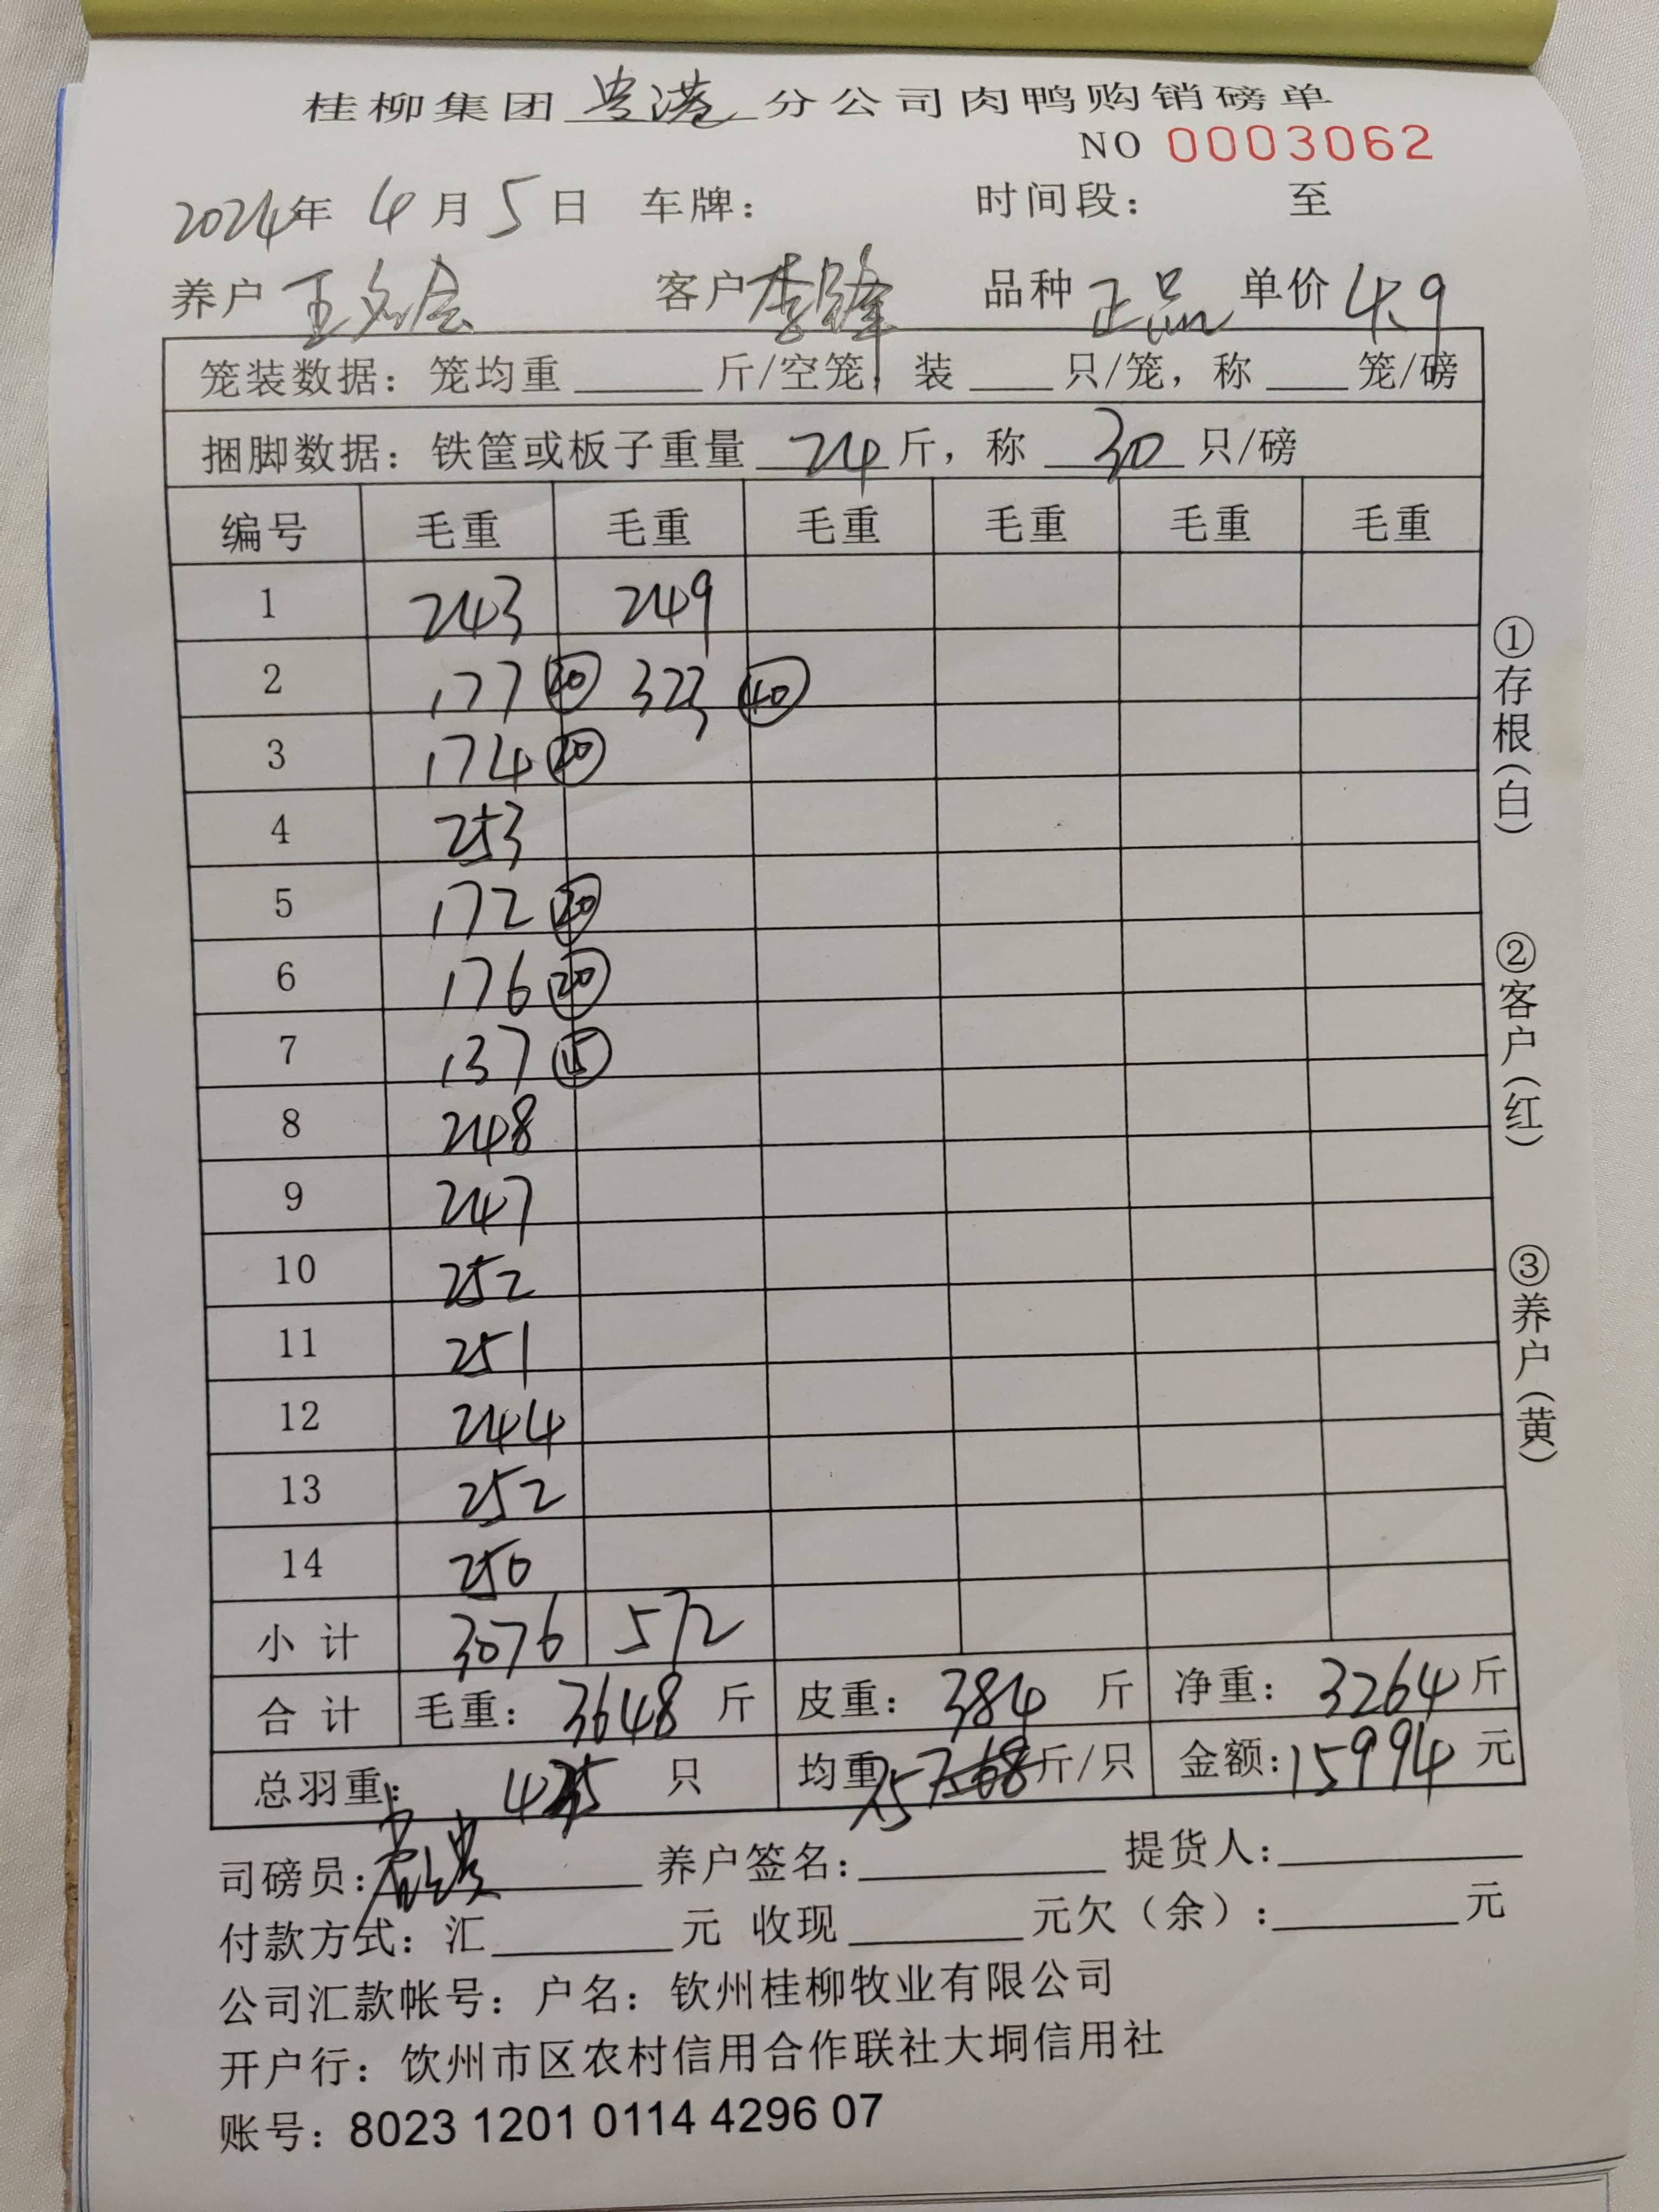 桂柳集团贵港分公司肉鸭购销磅单
NO 0003062
2024年 4月 5日 车牌： 时间段： 至
养户 王 会 客户 李锋 品种 正品 单价 4.9
笼装数据：笼均重 斤/空笼，装 只/笼，称 笼/磅
捆脚数据：铁筐或板子重量 24 斤，称 30 只/磅
编号 毛重 毛重 毛重 毛重 毛重 毛重
1 243 249
2 177 20 323 40
3 174 20
4 253
5 172 20
6 176 20
7 137 15
8 248
9 247
10 252
11 251
12 244
13 252
14 250
小 计 3076 572
合 计 毛重：3648 斤 皮重：384 斤 净重：3264 斤
总羽重： 只 均重： 斤/只 金额：15994 元
司磅员： 养户签名： 提货人：
付款方式：汇 元 收现 元欠（余）： 元
公司汇款帐号：户名：钦州桂柳牧业有限公司
开户行：钦州市区农村信用合作联社大垌信用社
账号：8023 1201 0114 4296 07
①存根（白）
②客户（红）
③养户（黄）